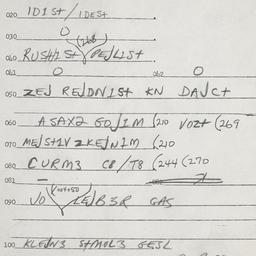 020 IDISt/IDESt
030 O
(268
060 RUSHISt PEJLISt
061 O 062 O
050 ZEJ REJDNISt KN DAJCt
060 ASAX2 GOJIM (210 VOZt (269
070 MEJStIV ZKEJNIM (210
080 CURM3 C8/T8 (244 (270
081 —
090 JO KEJB3R GAS
100 KLEJN3 StMOL3 GESL